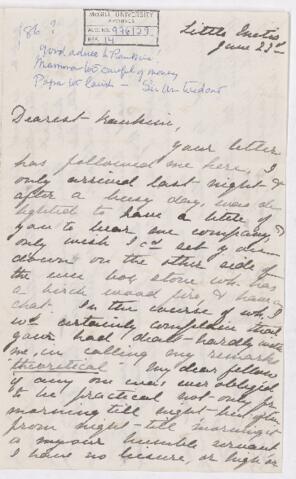 McGILL UNIVERSITY
ARCHIVES
ACC. NO.
REF. 14
186 ?
good advice to Rankine!
Mamma too careful of money
Papa too lavish —
Little Metis
June 23rd
Dearest Rankine,
Your letter
has followed me here, I
only arrived last night &
after a busy day, was de-
lighted to have a letter of
you to bear me company,
only wish I cd set you
down on the other side of
the wee box stove wh. has
a birch wood fire, & have a
chat. In the course of wh. I
wd. certainly complain that
you had dealt hardly with
me, in calling my remarks
theoretical. My dear fellow
if any one was ever obliged
to be practical not only fr.
morning till night but often
from night till morning it
is your humble servant
I have no leisure, or high or